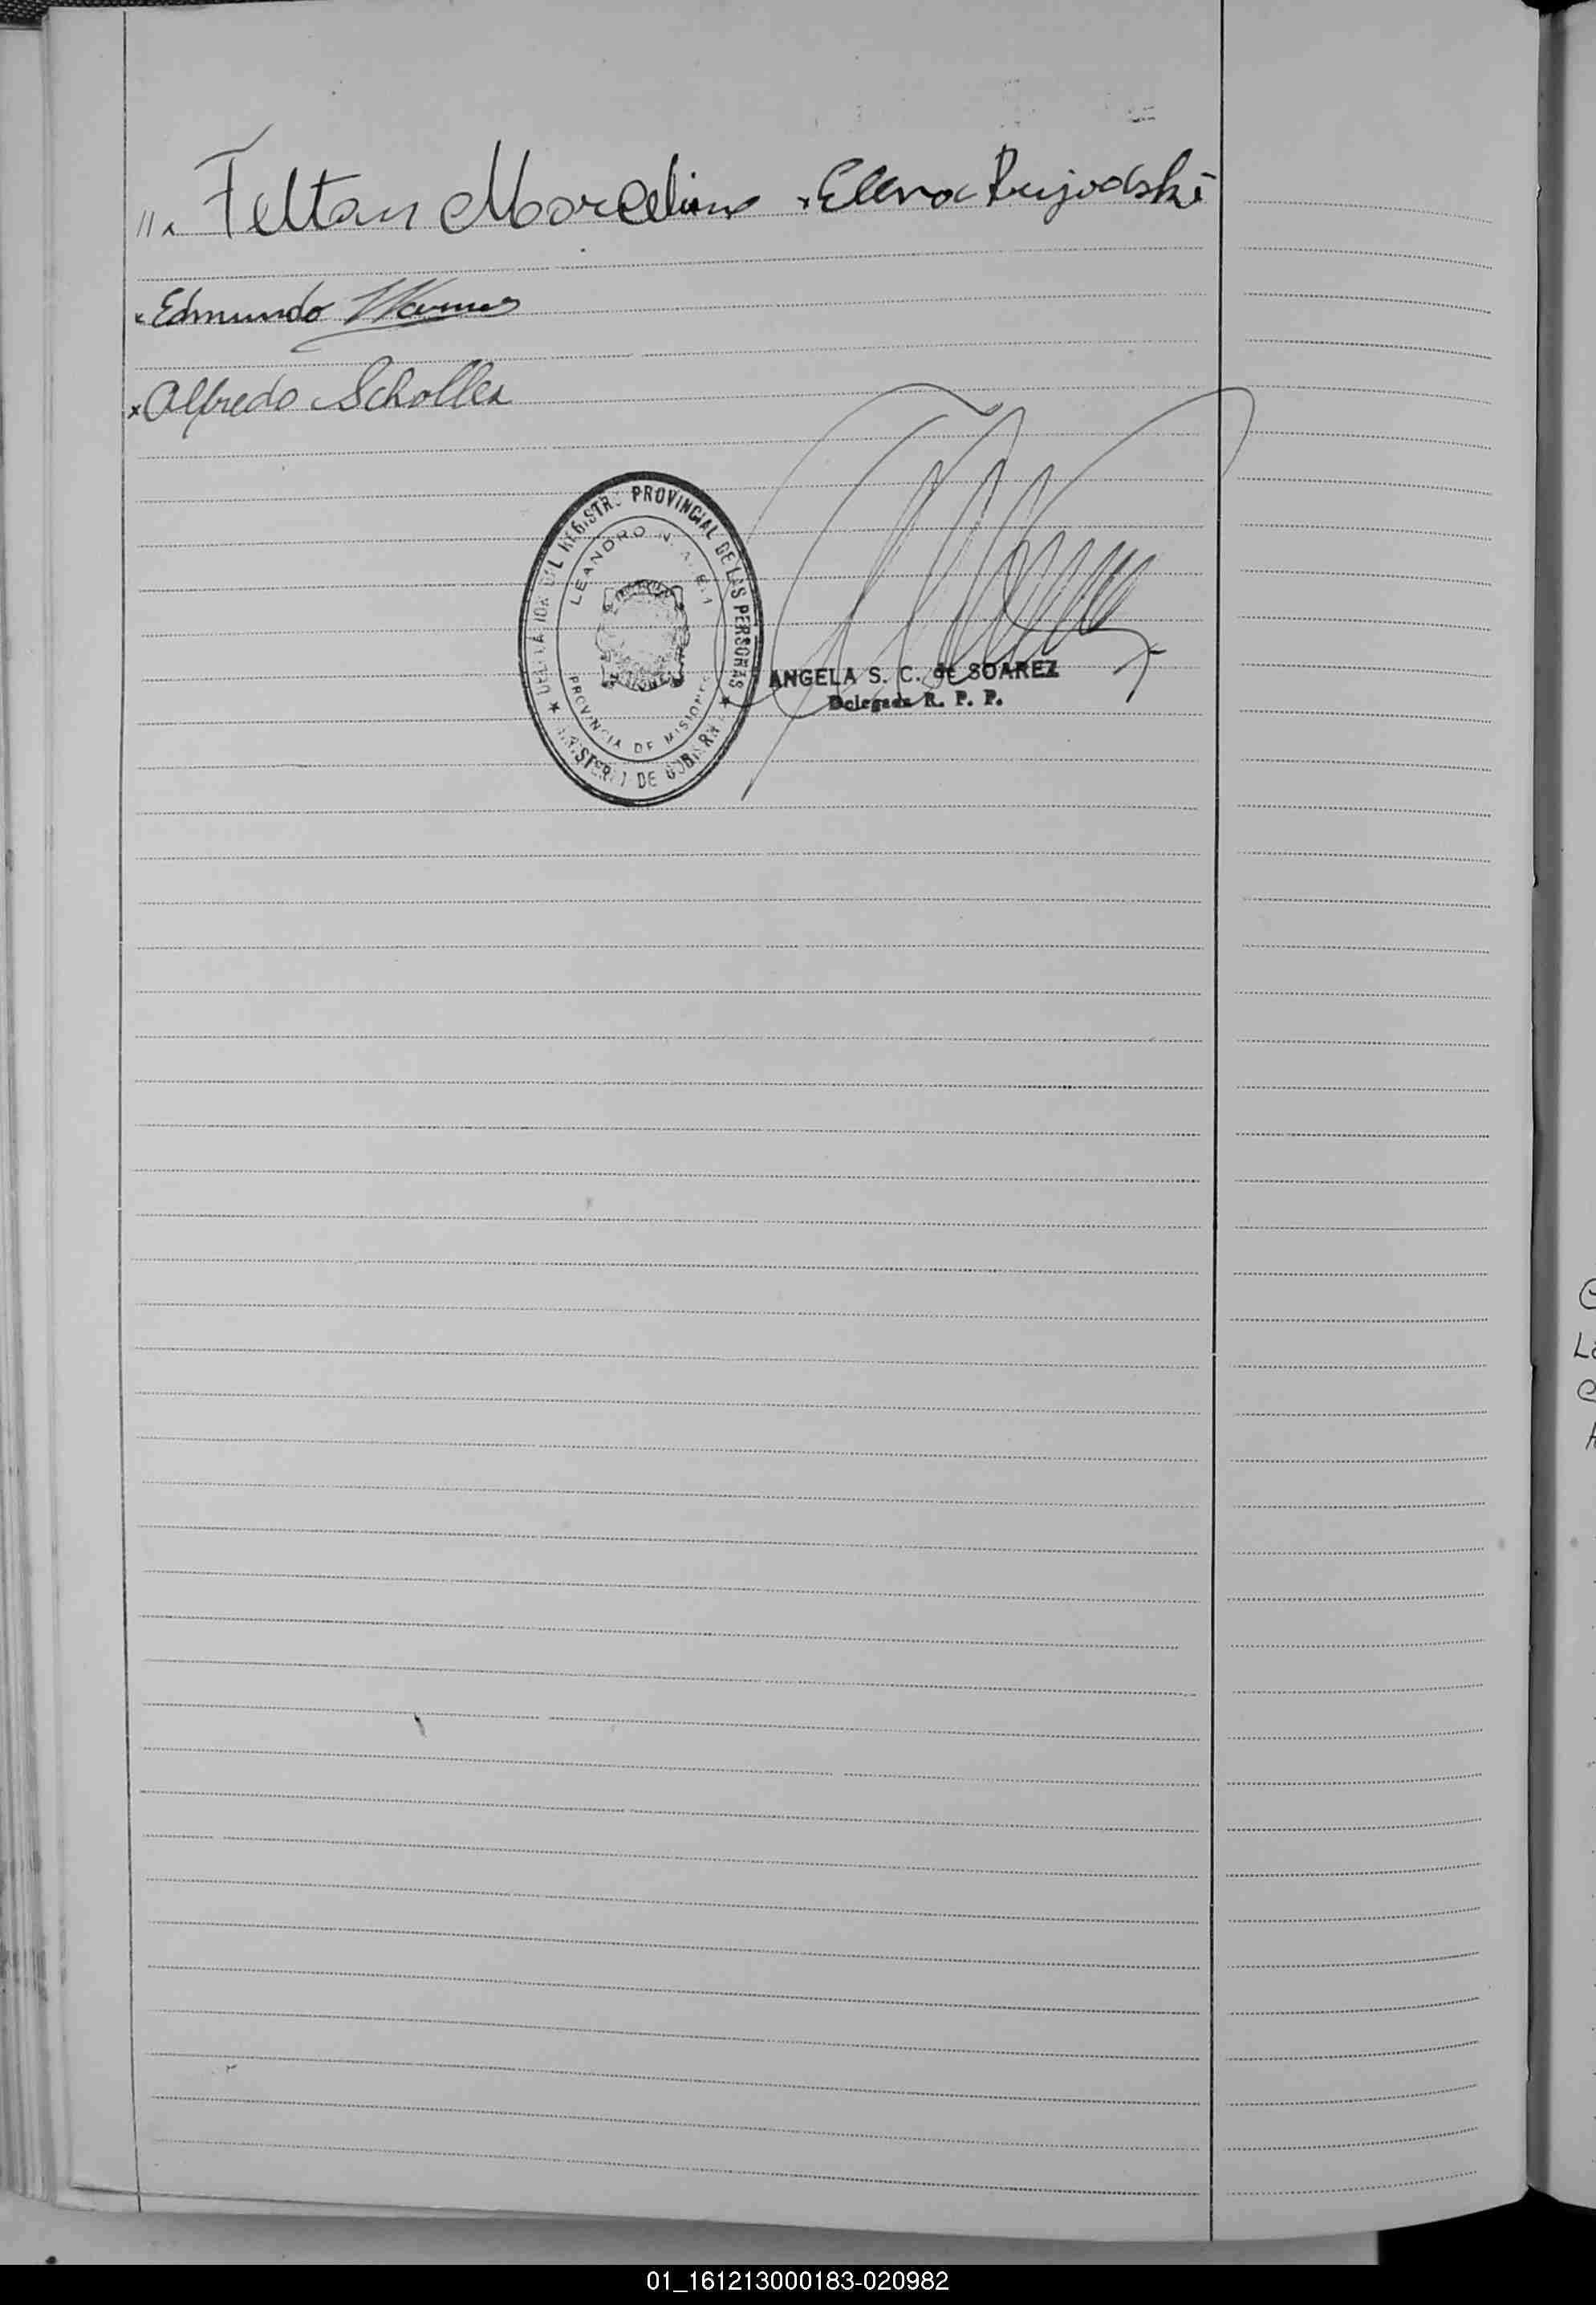 Feltan Marcelino x Elena
x Edmundo
x Alfredo Scholler
DELEGACION DEL REGISTRO PROVINCIAL DE LAS PERSONAS
LEANDRO N. ALEM
PROVINCIA DE MISIONES
MINISTERIO DE GOBIERNO
ANGELA S. C. de SOAREZ
Delegada R. P. P.
01_161213000183-020982